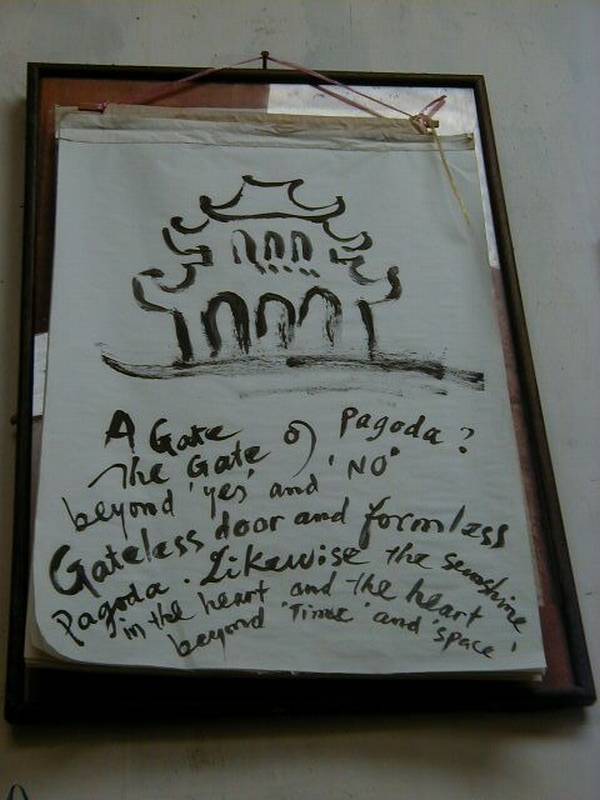 A Gate of Pagoda?
The Gate
beyond 'yes' and 'NO"
Gateless door and formless
Pagoda. Likewise the senshine
in the heart and the heart
beyond 'Time' and 'Space'